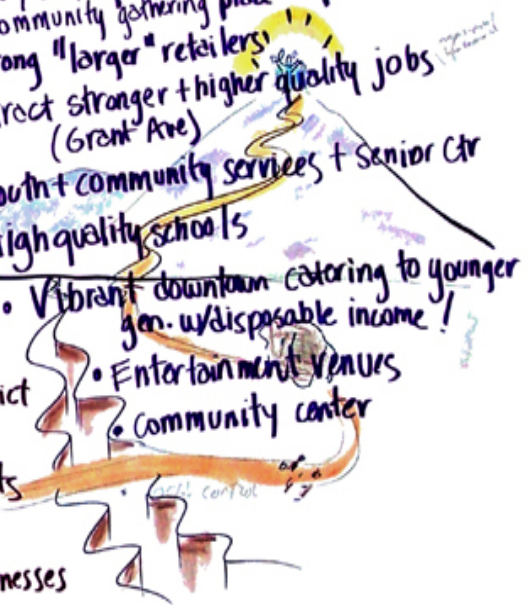 community gathering
ong "larger" retailers
ract stronger + higher quality jobs
(Grant Ave)
outh + community services + Senior Ctr
igh quality schools
• Vibrant downtown catoring to younger
gen. w/disposable income!
• Entertainment venues
ict
• Community center
ts
control
nesses